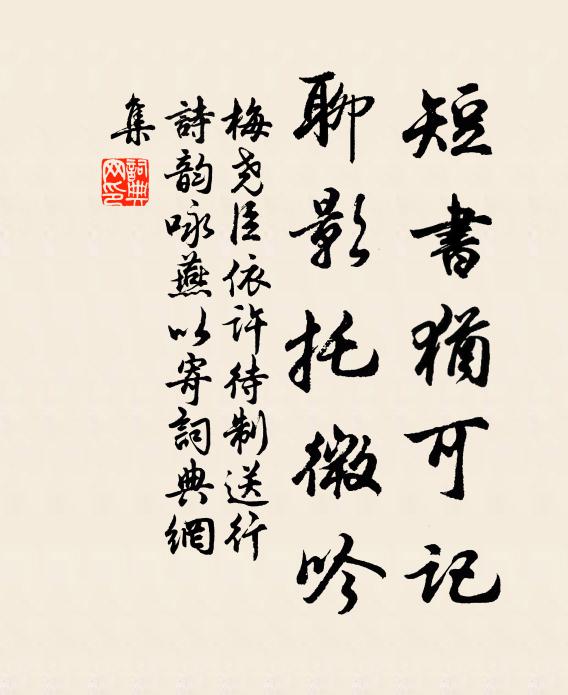 短書猶可記
聊影托微吟
梅尧臣依许待制送行
詩韵咏燕以寄詞典網
集
詞典網印